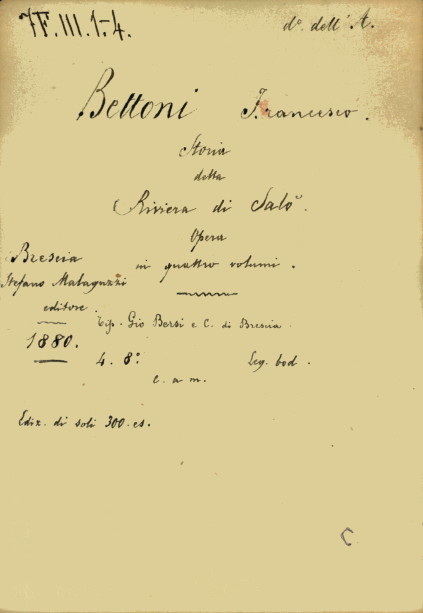 7F.III.1-4.
d° dell' A.
Bettoni Francesco.
Storia
della
Riviera di Salò.
Opera
in quattro volumi.
Brescia
Stefano Malaguzzi
editore.
1880.
Tip. Gio Bersi e C. di Brescia
4. 8°. Leg. bod.
c. a m.
Ediz. di soli 300. es.
C